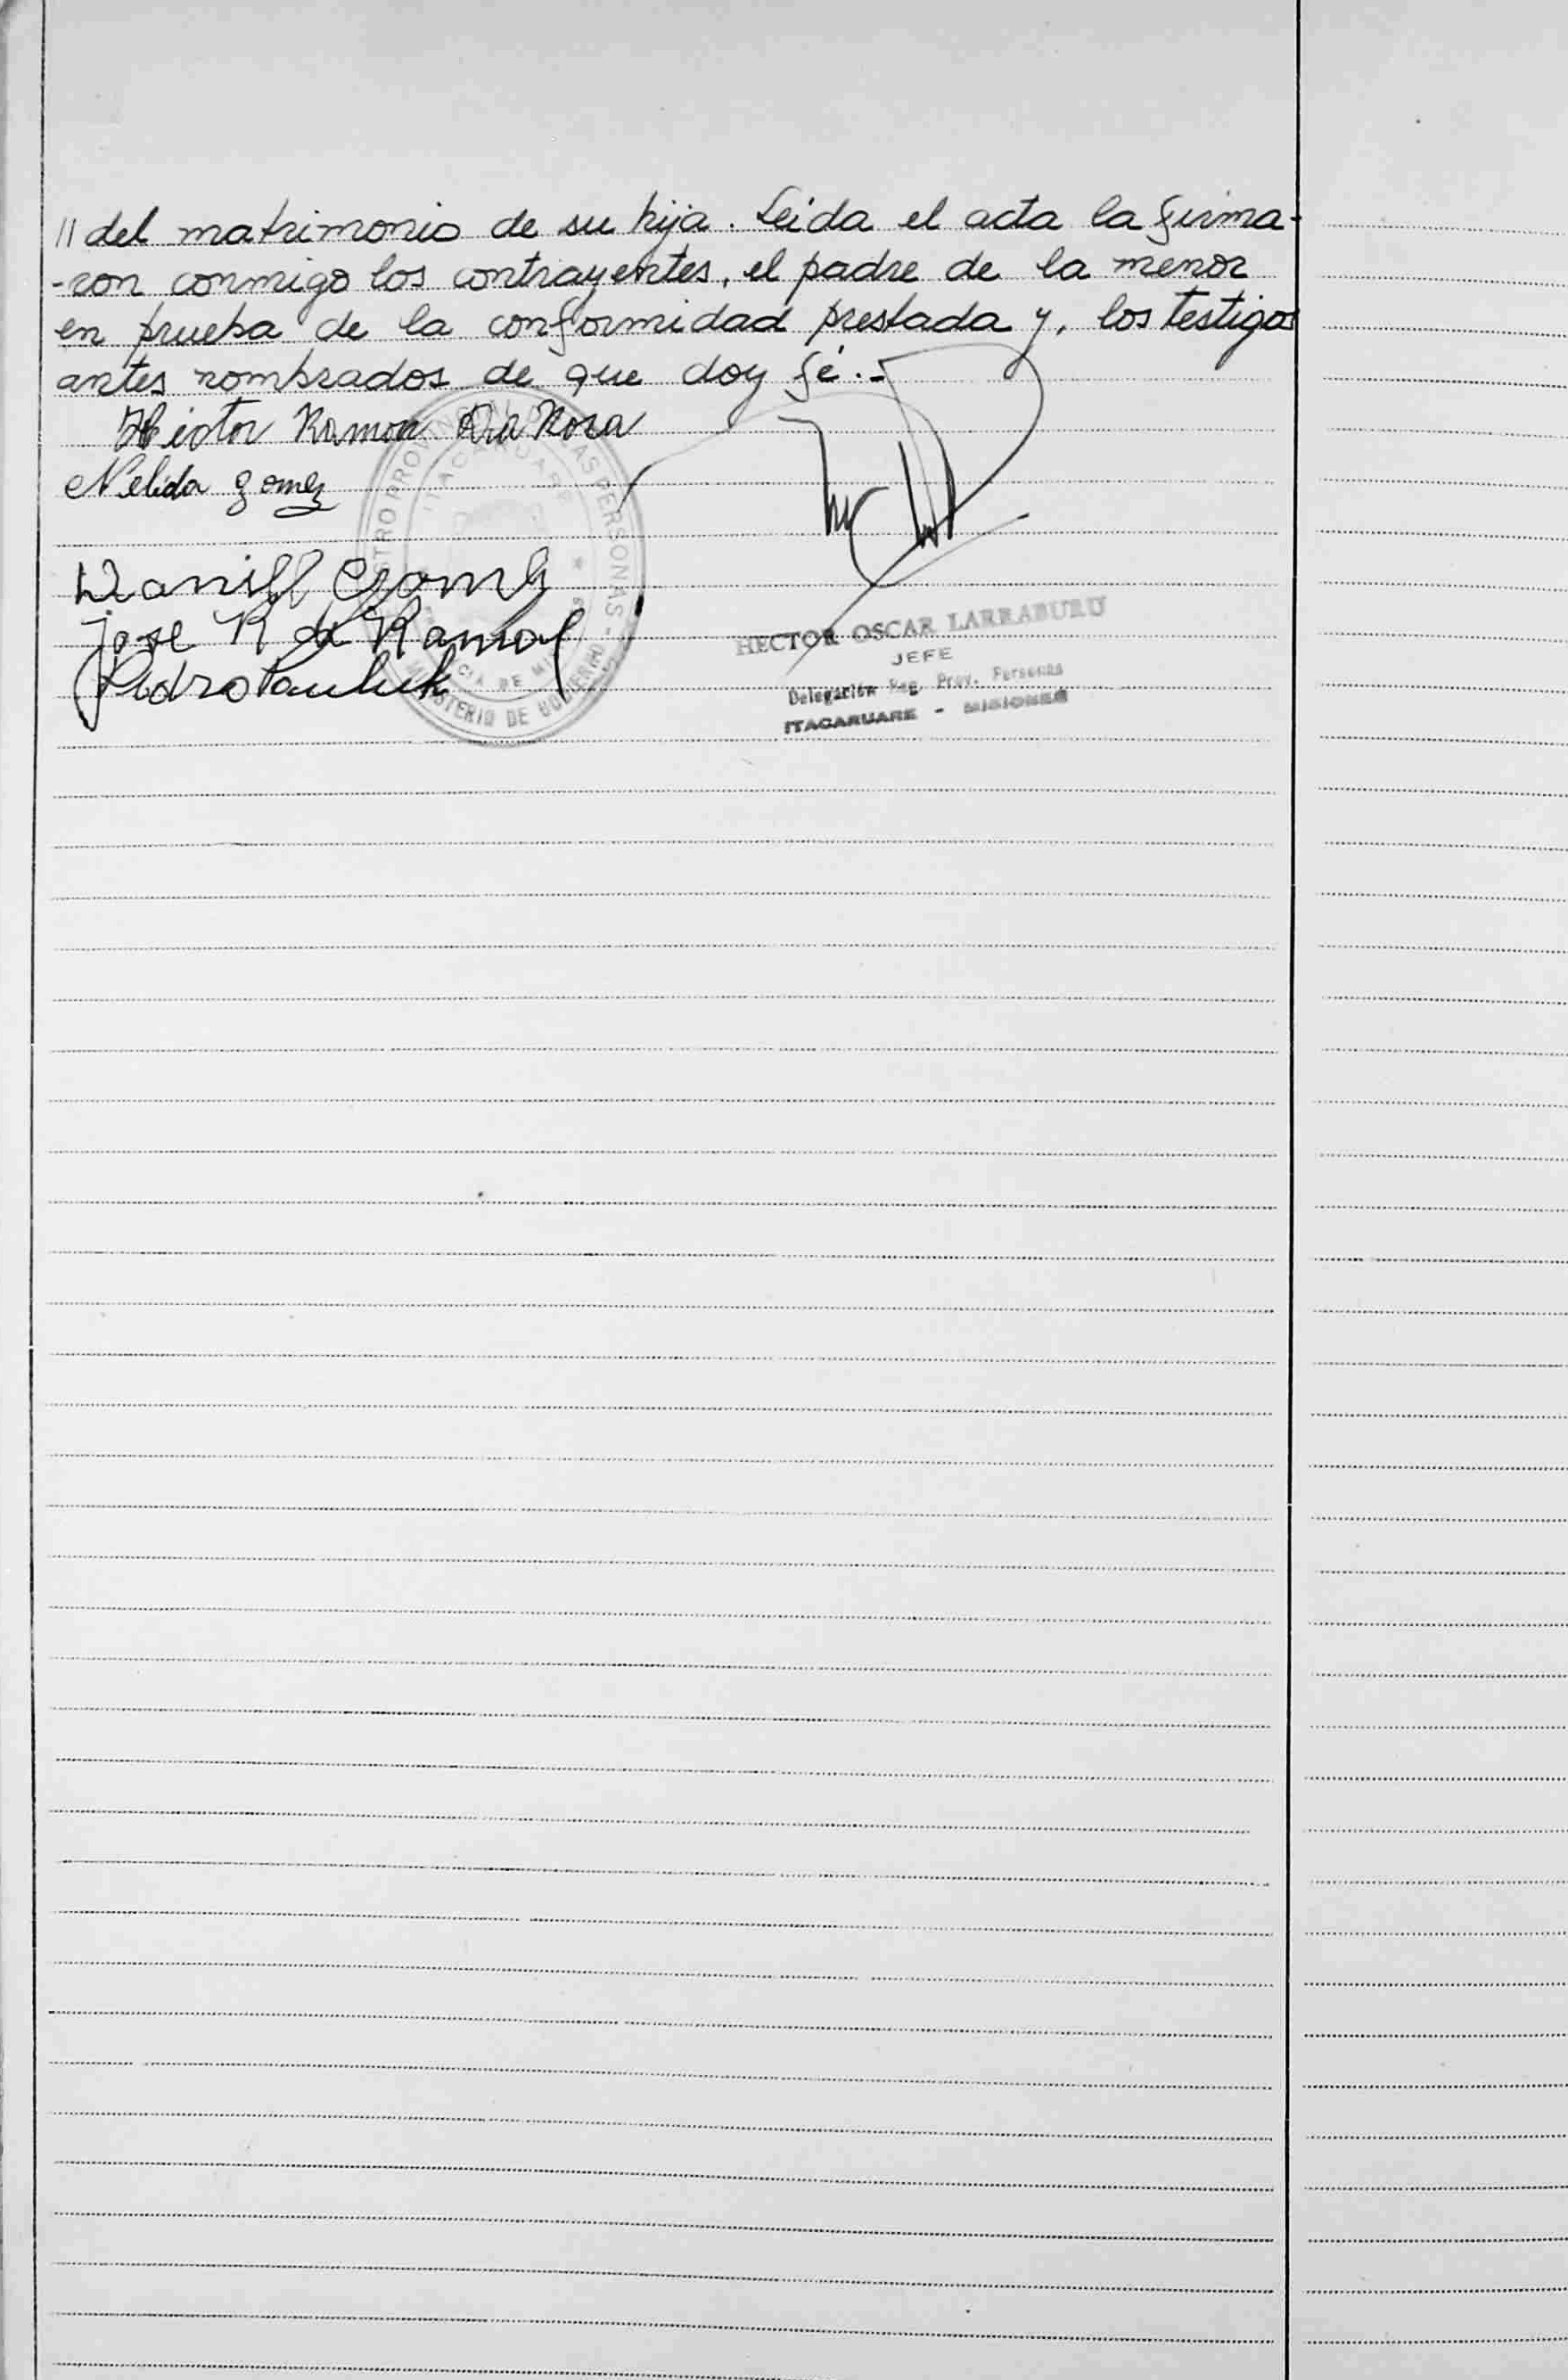 // del matrimonio de su hija. Leida el acta la firma-
-ron conmigo los contrayentes, el padre de la menor
en prueba de la conformidad prestada y, los testigos
antes nombrados de que doy fé.-
Héctor Ramon Da Rosa
Nelida gomez
Daniel Gomez
Jose R de Ramos
Pedro Pauluk
HECTOR OSCAR LARRABURU
JEFE
Delegación Reg. Prov. Personas
ITACARUARE - MISIONES
STRO PROVINCIAL DE LAS PERSONAS -
ITACARUARE
CIA DE MI
MINISTERIO DE GOBIERNO